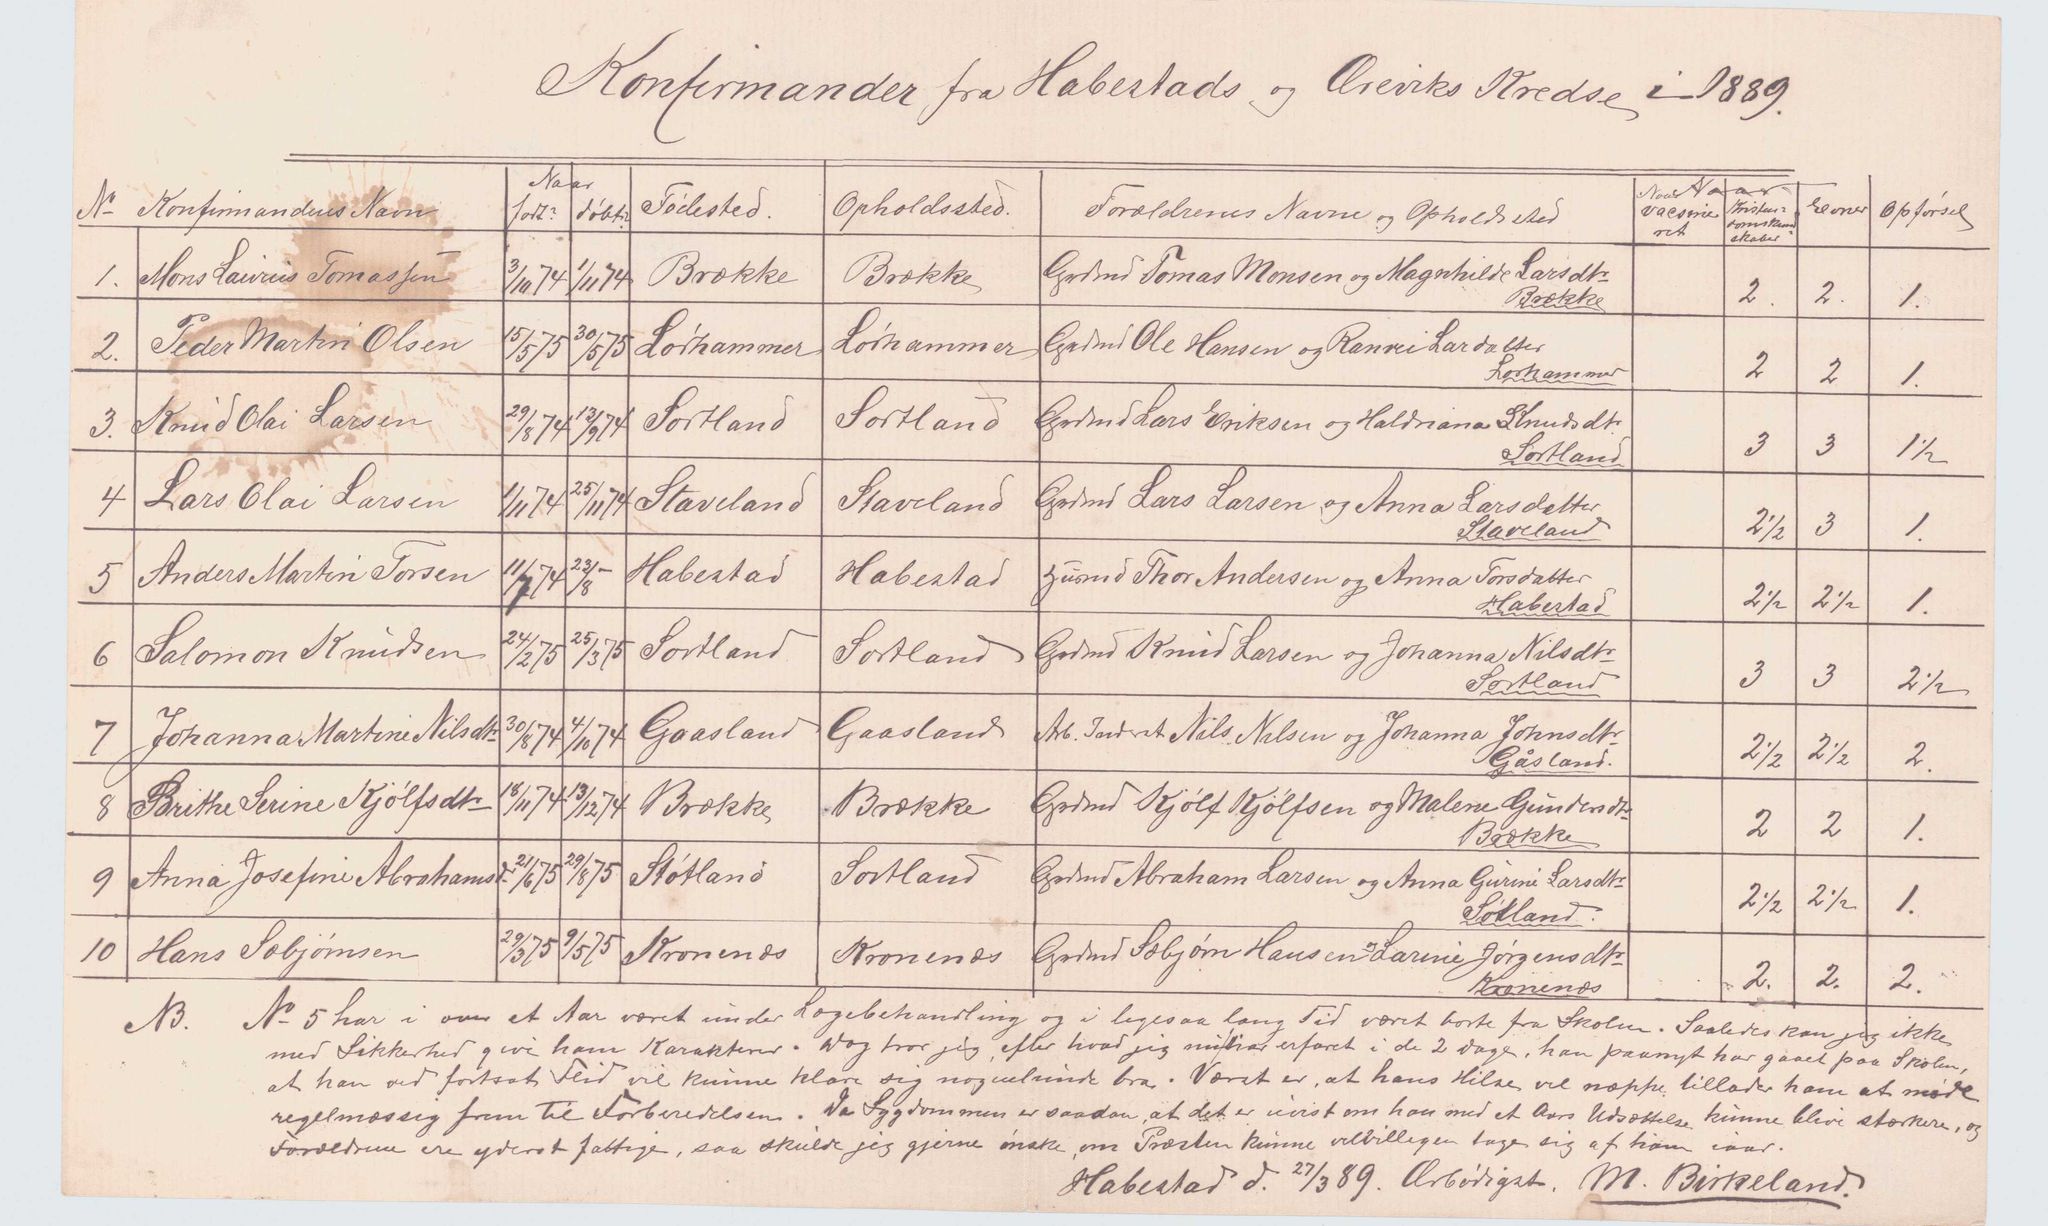 Konfirmander fra Habestads og Ørevíks Kredse i 1889.
No Konfirmandens Navn Naar født: døbt: Födested. Opholdssted. Forældrenes Navne og Opholdssted Naar vaccineret Kristendomskundskaber Evner Opförsel
1. Mons Laurius Tomassen 3/10 74 1/11 74 Brække Brække Grdmd Tomas Monsen og Magnhilde Larsdtr 2. 2. 1.
Brække
2. Peder Martin Olsen 15/5 75 30/5 75 Lórhammer Lórhammer Grdmd Ole Hansen og Ranvei Lardatter 2 2 1.
Lorhammer
3. Knud Olai Larsen 29/8 74 13/9 74 Sortland Sortland Grdmd Lars Eriksen og Haldriana Knudsdtr. 3 3 1 1/2
Sortland
4 Lars Olai Larsen 1/11 74 25/11 74 Staveland Staveland Grdmd Lars Larsen og Anna Larsdatter 2 1/2 3 1.
Staveland
5 Anders Martin Torsen 11/7 74 23/8 – Habestad Habestad Husmd Thor Andersen og Anna Torsdatter 2 1/2 2 1/2 1.
Habestad
6 Salomon Knudsen 24/2 75 25/3 75 Sortland Sortland Grdmd Knud Larsen og Johanna Nilsdtr 3 3 2 1/2
Sortland
7 Johanna Martine Nilsdtr 30/8 74 4/10 74 Gaasland Gaasland Arb. Inderst Nils Nilsen og Johanna Johnsdtr 2 1/2 2 1/2 2.
Gåsland.
8 Brithe Serine Kjölfsdtr 18/11 74 13/12 74 Brække Brække Grdmd Kjölf Kjölfsen og Malene Gundersdtr 2 2 1.
Brække
9 Anna Josefine Abrahamsd. 21/6 75 29/8 75 Stótland Sortland Grdmd Abraham Larsen og Anna Gurine Larsdtr 2 1/2 2 1/2 1.
Sótland.
10 Hans Sæbjörnsen 29/3 75 9/5 75 Kronenæs Kronenæs Grdmd Sæbjörn Hansen og Larine Jörgensdtr 2. 2. 2.
Kronenæs
NB. No 5 har i over et Aar været under Lægebehandling og i ligesaa lang Tid været borte fra Skolen. Saaledes kan jeg ikke
med Sikkerhed give ham Karakterer. Dog tror jeg, efter hvad jeg har erfaret i de 2 Dage, han paanyt har gaaet paa Skolen,
at han ved fortsat Flid vil kunne klare sig nogenlunde bra. Værst er, at hans Hilse vel næppe tillader ham at møde
regelmæssig frem til Forberedelsen. Da Sygdommen er saadan, at det er uvist om han med et Aars Udsættelse kunne blive stærkere, og
Forældrene ere yderst fattige, saa skulde jeg gjerne ønske, om Præsten kunne velvilligen tage sig af ham iaar.
Habestad d. 27/3 89. Ærbödigst. M. Birkeland.